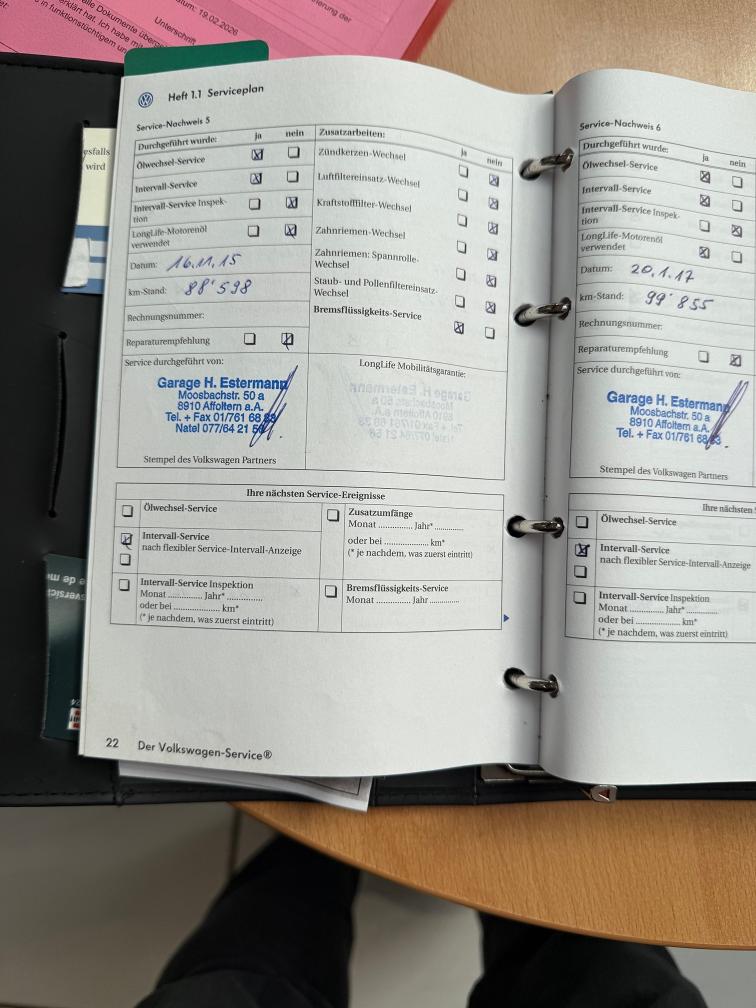 tum: 19.02.2026
Unterschrift
Heft 1.1 Serviceplan
Service-Nachweis 5
Durchgeführt wurde: ja nein
Ölwechsel-Service
Intervall-Service
Intervall-Service Inspek-
tion
LongLife-Motorenöl
verwendet
Datum: 16.11.15
km-Stand: 88'598
Rechnungsnummer:
Reparaturempfehlung
Service durchgeführt von:
Garage H. Estermann
Moosbachstr. 50 a
8910 Affoltern a.A.
Tel. + Fax 01/761 68
Natel 077/64 21
Stempel des Volkswagen Partners
Zusatzarbeiten: ja nein
Zündkerzen-Wechsel
Luftfiltereinsatz-Wechsel
Kraftstofffilter-Wechsel
Zahnriemen-Wechsel
Zahnriemen: Spannrolle-
Wechsel
Staub- und Pollenfiltereinsatz-
Wechsel
Bremsflüssigkeits-Service
LongLife Mobilitätsgarantie:
Ihre nächsten Service-Ereignisse
Ölwechsel-Service
Intervall-Service
nach flexibler Service-Intervall-Anzeige
Intervall-Service Inspektion
Monat ............ Jahr* ............
oder bei ............ km*
(* je nachdem, was zuerst eintritt)
Zusatzumfänge
Monat ............ Jahr* ............
oder bei ............ km*
(* je nachdem, was zuerst eintritt)
Bremsflüssigkeits-Service
Monat ............ Jahr ............
22 Der Volkswagen-Service®
Service-Nachweis 6
Durchgeführt wurde: ja nein
Ölwechsel-Service
Intervall-Service
Intervall-Service Inspek-
tion
LongLife-Motorenöl
verwendet
Datum: 20.1.17
km-Stand: 99'855
Rechnungsnummer:
Reparaturempfehlung
Service durchgeführt von:
Garage H. Estermann
Moosbachstr. 50 a
8910 Affoltern a.A.
Tel. + Fax 01/761 68
Stempel des Volkswagen Partners
Ihre nächsten
Ölwechsel-Service
Intervall-Service
nach flexibler Service-Intervall-Anzeige
Intervall-Service Inspektion
Monat ............ Jahr* ............
oder bei ............ km*
(* je nachdem, was zuerst eintritt)